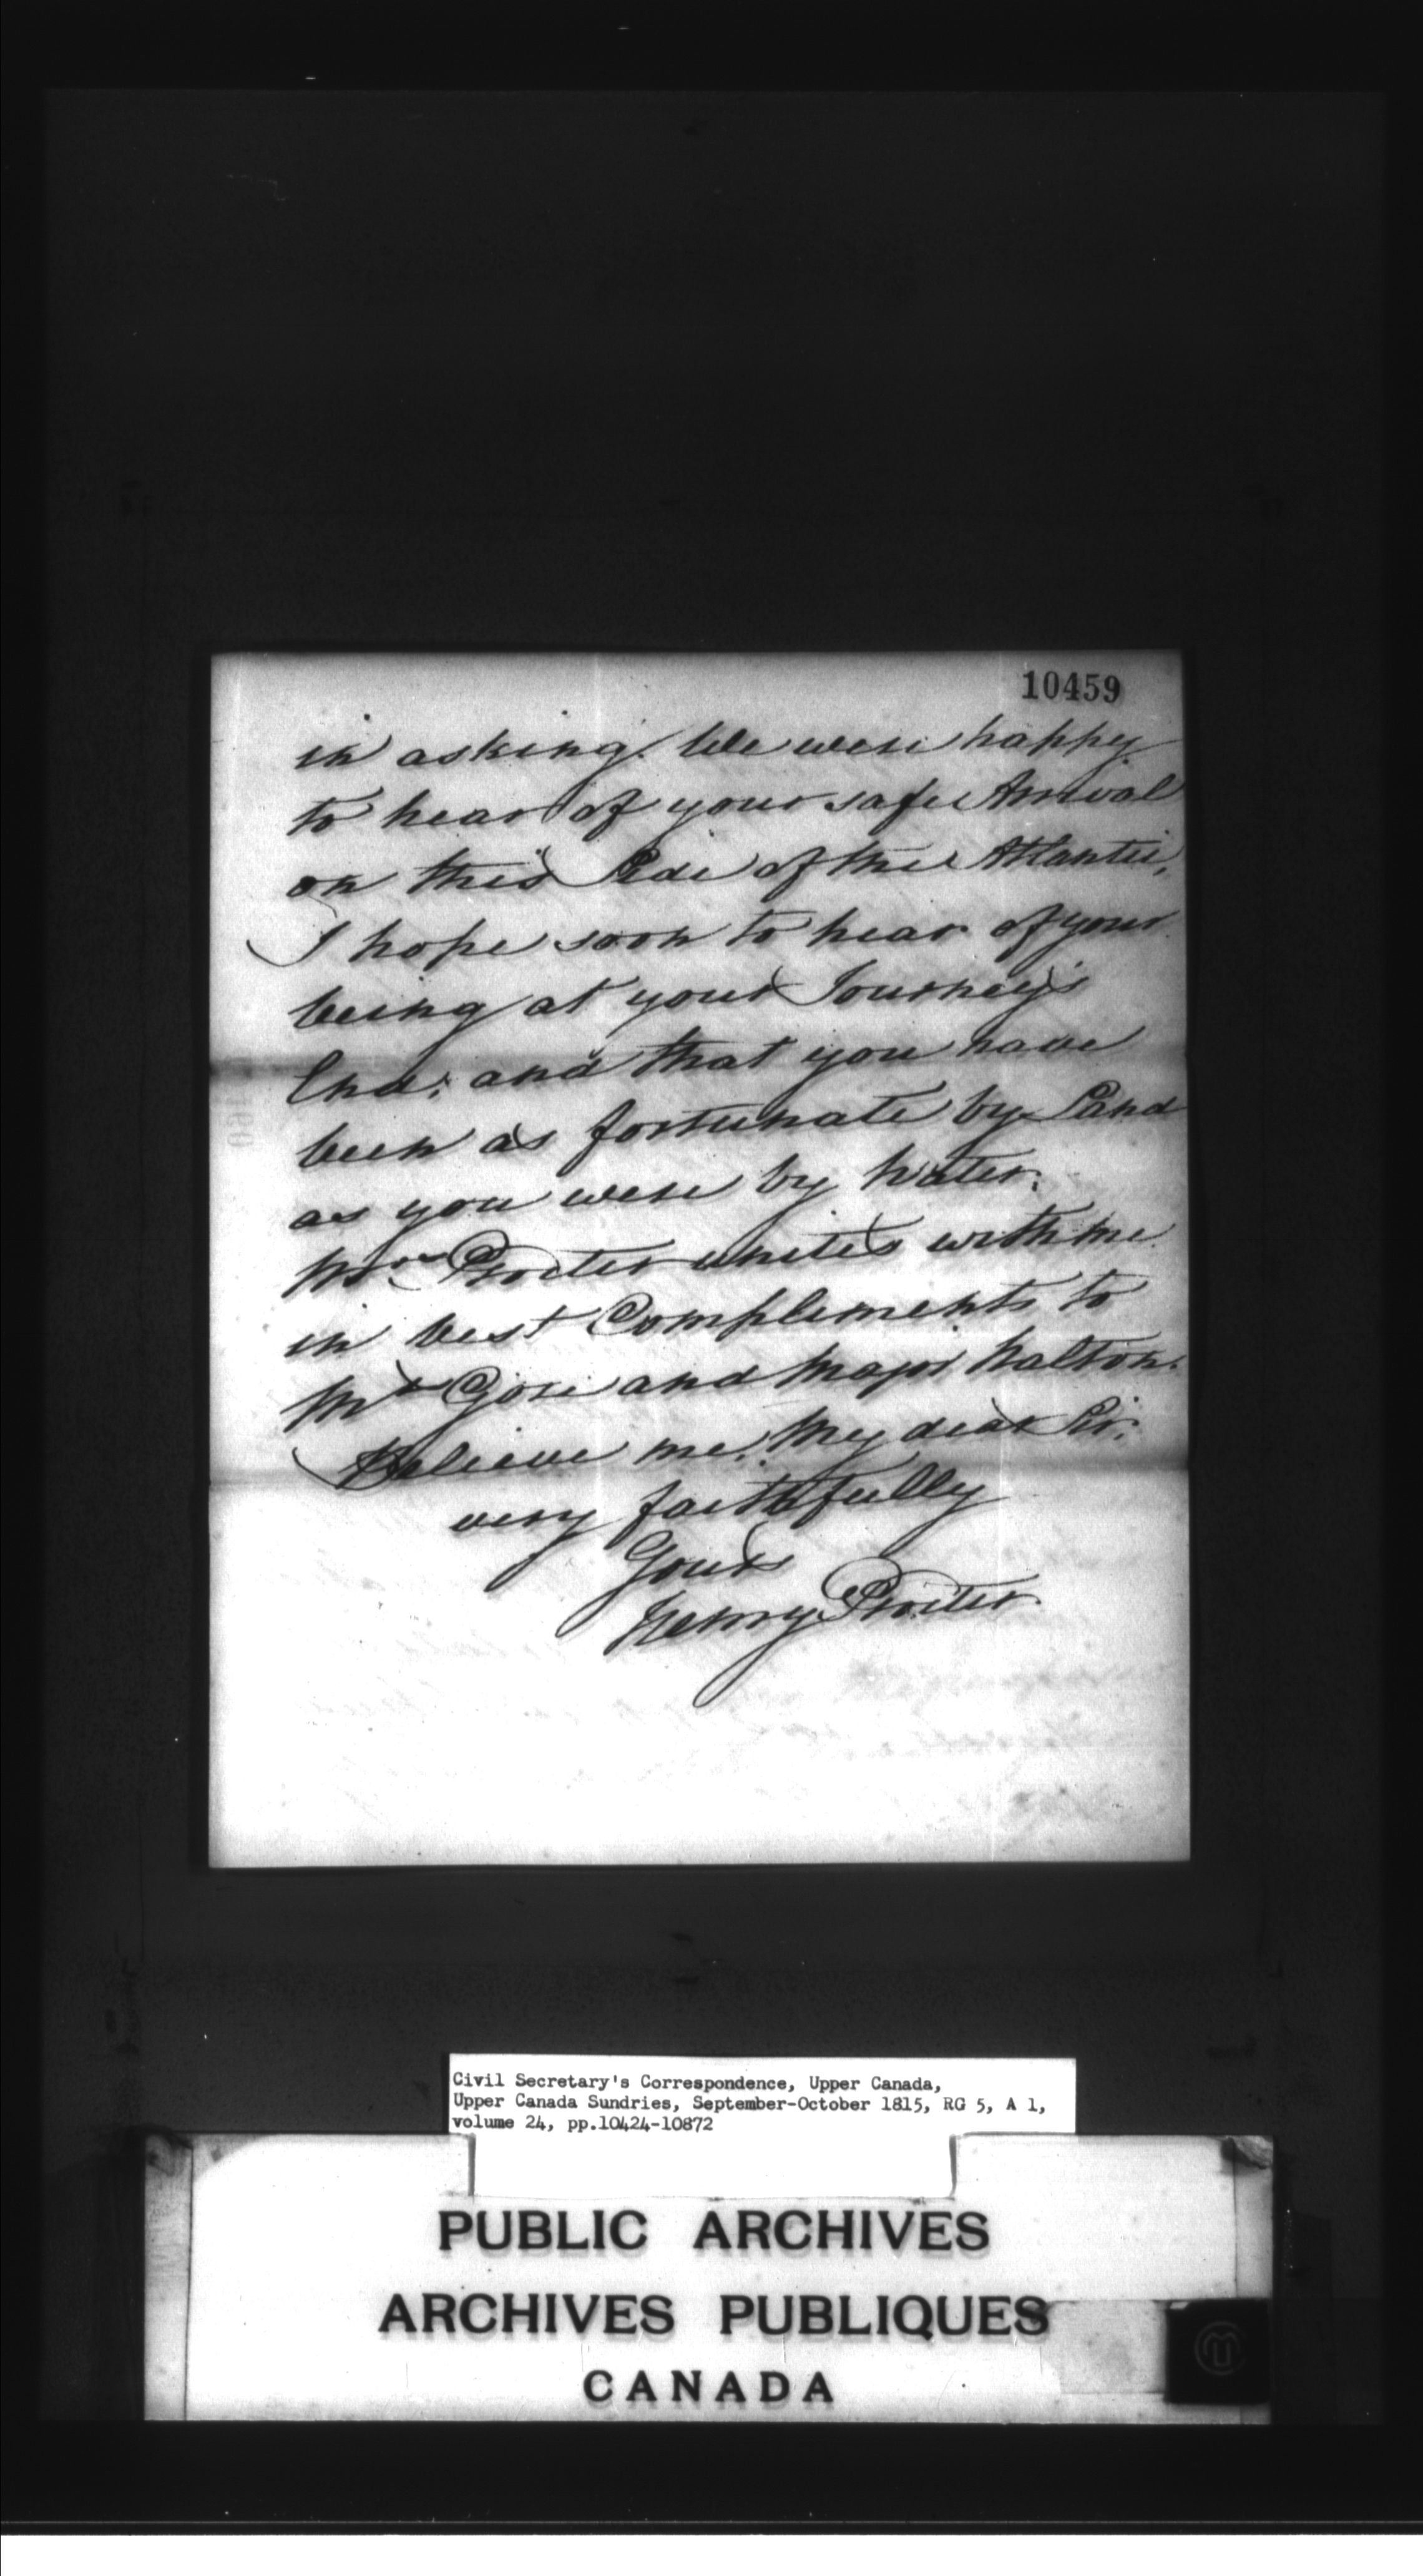 10459
in asking. We were happy
to hear of your safe Arrival
on this Side of the Atlantic,
I hope soon to hear of your
being at your Journey's
End; and that you have
been as fortunate by Land
as you were by Water.
Mrs Procter unites with me
in best Compliments to
Mrs Gore and Major Halton.
Believe me, My dear Sir,
very faithfully
Yours
Henry Procter
Civil Secretary's Correspondence, Upper Canada,
Upper Canada Sundries, September-October 1815, RG 5, A 1,
volume 24, pp.10424-10872
PUBLIC ARCHIVES
ARCHIVES PUBLIQUES
CANADA